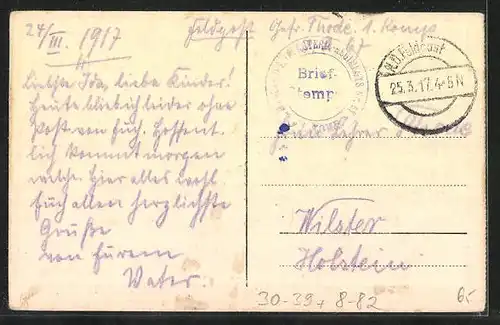 24/III. 1917
Feldpost Gefr. Thode. 1. Komp
Liebste Ida, liebe Kinder!
Heute blieb ich leider ohne
Post von Euch. Hoffent-
lich kommt morgen
welche. Hier alles wohl
Euch allen herzlichste
Grüße
von Eurem
Vater.
Brief-
stemp
K.D. Feldpost
25.3.17. 4-5 N
Frau Lehrer Thode
Wilster
Holstein
30-39+ 8-82
65